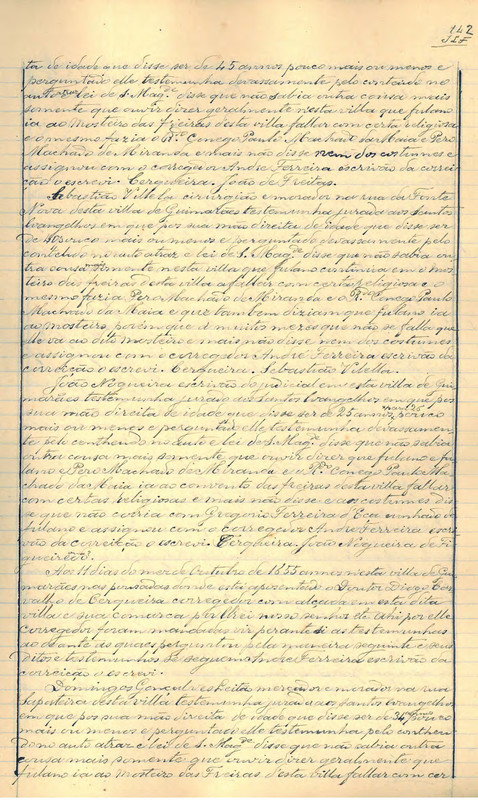 142
ta de idade que disse ser de 45 annos pouco mais ou menos e
perguntado elle testemunha devassamente pelo contheudo no
auto atraz e lei de S. Magde disse que não sabia outra cousa mais
somente que ouvir dizer geralmente nesta villa que fulano
ia ao Mosteiro das freiras desta villa fallar com certa religiosa
e o mesmo fazia o Rdo Conego Paulo Machado da Maia e Pero
Machado de Miranda e mais não disse nem dos costumes e
assignou com o corregedor Andre Ferreira escrivão da correi
ção o escrevi. Cerqueira. João de Freitas.
Sebastião Vilella cirurgião e morador na rua da Fonte
Nova desta villa de Guimarães testemunha jurada aos Santos
Evangelhos em que pos sua mão direita de idade que disse ser
de pouco mais ou menos e perguntado devassamente pelo
contheudo no auto atraz e lei de S. Magde disse que não sabia ou
tra cousa somente nesta villa que fulano continua em o mos
teiro das freiras desta villa a fallar com certa religiosa e o
mesmo fazia Pero Machado de Miranda e o Rdo Conego Paulo
Machado da Maia e que tambem diziam que fulano ia
ao mosteiro, porem que ha muitos mezes que não se falla que
elle va ao dito mosteiro e mais não disse nem dos costumes
e assignou com o corregedor André Ferreira escrivão da
correição o escrevi. Cerqueira. Sebastião Vilella.
João Nogueira escrivão do judicial em esta villa de Gui
marães testemunha jurado aos Santos Evangelhos em que pos
sua mão direita de idade que disse ser de 25 annos pouco
mais ou menos e perguntado elle testemunha devassamen
te pelo contheudo no auto e lei de S. Magde disse que não sabia
outra cousa mais somente que ouvir dizer que fulano e fu
lano e Pero Machado de Miranda e o Rdo Conego Paulo Ma
chado da Maia ia ao convento das freiras desta villa fallar
com certas religiosas e mais não disse e aos costumes dis
se que não corria com Gregorio Ferreira d'Eça cunhado de
fulano e assignou com o corregedor Andre Ferreira escri
vão da correição o escrevi. Cerqueira. João Nogueira de Fi
gueiredo.
Aos 11 dias do mez de Outubro de 1655 annos nesta villa de Gui
marães nas pousadas donde está aposentado o Doutor Diogo Car
valho de Cerqueira corregedor com alçada em esta dita
villa e sua comarca por El rei nosso senhor ahi por elle
corregedor foram mandadas vir perante si as testemunhas
ao deante as quaes perguntou pela maneira seguinte e seus
ditos e testemunhos se seguem Andre Ferreira escrivão da
correição o escrevi.
Domingos Gonçalves Leite, mercador e morador na rua
Sapateira desta villa testemunha jurada aos Santos Evangelhos
em que pos sua mão direita de idade que disse ser de pouco
mais ou menos e perguntado elle testemunha pelo contheu
do no auto atraz e lei de S. Magde disse que não sabia outra
cousa mais somente que ouvir dizer geralmente que
fulano ia ao Mosteiro das Freiras desta villa fallar com cer